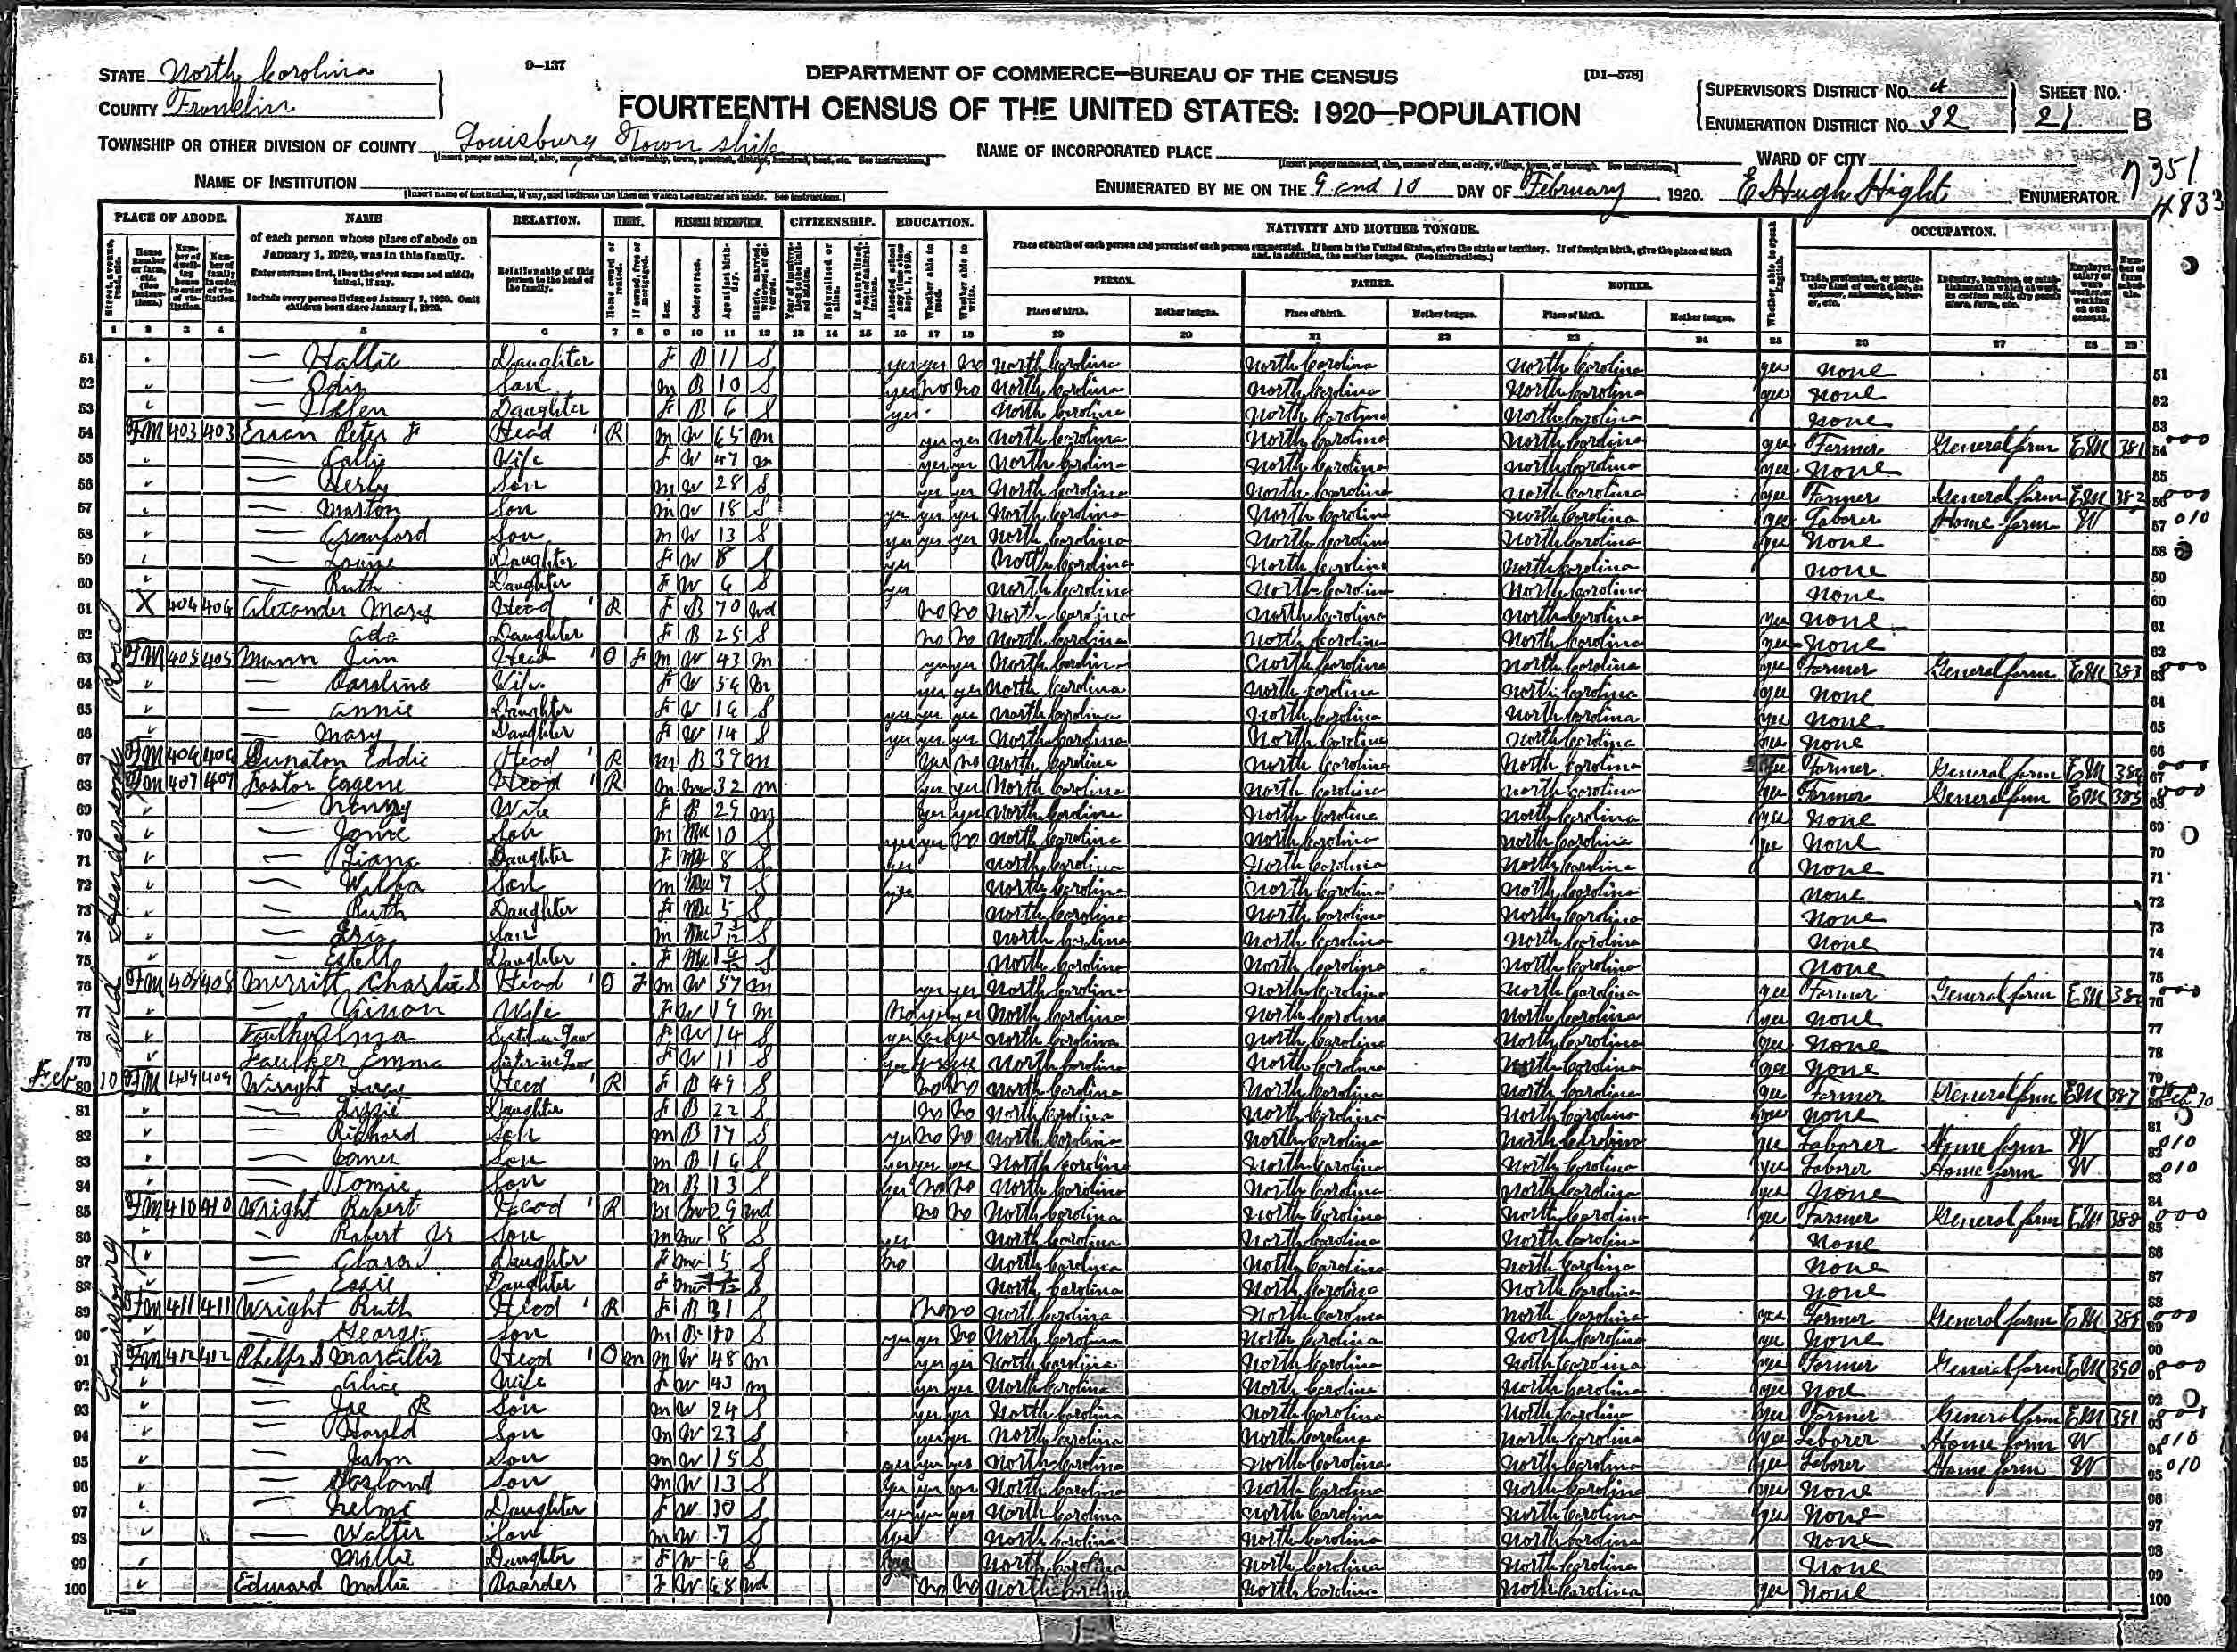 STATE North Carolina
0-137
DEPARTMENT OF COMMERCE—BUREAU OF THE CENSUS
[D1-578]
SUPERVISOR'S DISTRICT No. 4 SHEET No.
COUNTY Franklin
FOURTEENTH CENSUS OF THE UNITED STATES: 1920—POPULATION
ENUMERATION DISTRICT No. 32 21 B
TOWNSHIP OR OTHER DIVISION OF COUNTY Louisburg Township
NAME OF INCORPORATED PLACE
WARD OF CITY
7351
NAME OF INSTITUTION
ENUMERATED BY ME ON THE 9 and 10 DAY OF February, 1920. E Hugh Hight ENUMERATOR.
4833
PLACE OF ABODE. NAME RELATION. TENURE. PERSONAL DESCRIPTION. CITIZENSHIP. EDUCATION. NATIVITY AND MOTHER TONGUE. OCCUPATION.
of each person whose place of abode on January 1, 1920, was in this family.
Enter surname first, then the given name and middle initial, if any.
Include every person living on January 1, 1920. Omit children born since January 1, 1920.
Relationship of this person to the head of the family.
PERSON. FATHER. MOTHER.
Place of birth. Mother tongue. Place of birth. Mother tongue. Place of birth. Mother tongue.
1 2 3 4 5 6 7 8 9 10 11 12 13 14 15 16 17 18 19 20 21 22 23 24 25 26 27 28 29
51 — Hallie Daughter F B 11 S yes yes no North Carolina North Carolina North Carolina yes none 51
52 — Son M B 10 S yes no no North Carolina North Carolina North Carolina yes none 52
53 — Daughter F B 6 S yes North Carolina North Carolina North Carolina none 53
54 FM 403 403 Peter F Head R M W 65 M yes yes North Carolina North Carolina North Carolina yes Farmer General farm EM 381 54 000
55 — Wife F W 47 M yes yes North Carolina North Carolina North Carolina yes none 55
56 — Son M W 28 S yes yes North Carolina North Carolina North Carolina yes Farmer General farm EM 382 56 000
57 — Marston Son M W 18 S yes yes yes North Carolina North Carolina North Carolina yes Laborer Home farm W 57 010
58 — Crawford Son M W 13 S yes yes yes North Carolina North Carolina North Carolina yes none 58
59 — Louise Daughter F W 8 S yes North Carolina North Carolina North Carolina none 59
60 — Ruth Daughter F W 6 S yes North Carolina North Carolina North Carolina none 60
61 X 404 404 Alexander Mary Head R F B 70 Wd no no North Carolina North Carolina North Carolina yes none 61
62 Ada Daughter F B 25 S no no North Carolina North Carolina North Carolina yes none 62
63 FM 405 405 Mann Jim Head O F M W 43 M yes yes North Carolina North Carolina North Carolina yes Farmer General farm EM 383 63 000
64 — Caroline Wife F W M yes yes North Carolina North Carolina North Carolina yes none 64
65 — Annie Daughter F W 16 S yes yes yes North Carolina North Carolina North Carolina yes none 65
66 — Mary Daughter F W 14 S yes yes yes North Carolina North Carolina North Carolina yes none 66
67 FM 406 406 Dunston Eddie Head R M B 39 M yes no North Carolina North Carolina North Carolina yes Farmer General farm EM 384 67 000
68 FM 407 407 Foster Eugene Head R M Mu 32 M yes yes North Carolina North Carolina North Carolina yes Farmer General farm EM 385 68 000
69 — Wife F B 29 M yes yes North Carolina North Carolina North Carolina yes none 69
70 — Son M Mu 10 S yes yes no North Carolina North Carolina North Carolina yes none 70
71 — Daughter F Mu 8 S yes North Carolina North Carolina North Carolina none 71
72 — Son M Mu 7 S yes North Carolina North Carolina North Carolina none 72
73 — Ruth Daughter F Mu 5 S North Carolina North Carolina North Carolina none 73
74 — Son M Mu S North Carolina North Carolina North Carolina none 74
75 — Estelle Daughter F Mu S North Carolina North Carolina North Carolina none 75
76 FM 408 408 Merritt Charlie S Head O F M W 57 M yes yes North Carolina North Carolina North Carolina yes Farmer General farm EM 386 76 000
77 — Vinson Wife F W 19 M no yes yes North Carolina North Carolina North Carolina yes none 77
78 Alma Sister in Law F W 14 S yes yes yes North Carolina North Carolina North Carolina yes none 78
79 Faulkner Emma Sister in Law F W 11 S yes yes yes North Carolina North Carolina North Carolina yes none 79
Feb 10 80 FM 409 409 Wright Head R F B 49 S no no North Carolina North Carolina North Carolina yes Farmer General farm EM 387 80 Feb 10
81 — Lizzie Daughter F B 22 S no no North Carolina North Carolina North Carolina yes none 81
82 — Richard Son M B 17 S yes no no North Carolina North Carolina North Carolina yes Laborer Home farm W 82 010
83 — Son M B 16 S yes yes yes North Carolina North Carolina North Carolina yes Laborer Home farm W 83 010
84 — Tomie Son M B 13 S yes no no North Carolina North Carolina North Carolina yes none 84
85 FM 410 410 Wright Robert Head R M Mu 29 Wd no no North Carolina North Carolina North Carolina yes Farmer General farm EM 388 85 000
86 — Robert Jr Son M Mu 8 S yes North Carolina North Carolina North Carolina none 86
87 — Clara Daughter F Mu 5 S no North Carolina North Carolina North Carolina none 87
88 — Essie Daughter F Mu S North Carolina North Carolina North Carolina none 88
89 FM 411 411 Wright Ruth Head R F B 31 S no no North Carolina North Carolina North Carolina yes Farmer General farm EM 389 89 000
90 — George Son M B 10 S yes yes no North Carolina North Carolina North Carolina yes none 90
91 FM 412 412 Phelps S Marcillis Head O M M W 48 M yes yes North Carolina North Carolina North Carolina yes Farmer General farm EM 390 91 000
92 — Alice Wife F W 43 M yes yes North Carolina North Carolina North Carolina yes none 92
93 — Joe R Son M W 24 S yes yes North Carolina North Carolina North Carolina yes Farmer General farm EM 391 93 000
94 — Harold Son M W 23 S yes yes North Carolina North Carolina North Carolina yes Laborer Home farm W 94 010
95 — John Son M W 15 S yes yes yes North Carolina North Carolina North Carolina yes Laborer Home farm W 95 010
96 — Son M W 13 S yes yes yes North Carolina North Carolina North Carolina yes none 96
97 — Daughter F W 10 S yes yes yes North Carolina North Carolina North Carolina yes none 97
98 — Walter Son M W 7 S yes North Carolina North Carolina North Carolina none 98
99 Mallie Daughter F W 6 S yes North Carolina North Carolina North Carolina none 99
100 Edward Mollie Boarder F W 68 Wd no no North Carolina North Carolina North Carolina yes none 100
Louisburg and Henderson Road